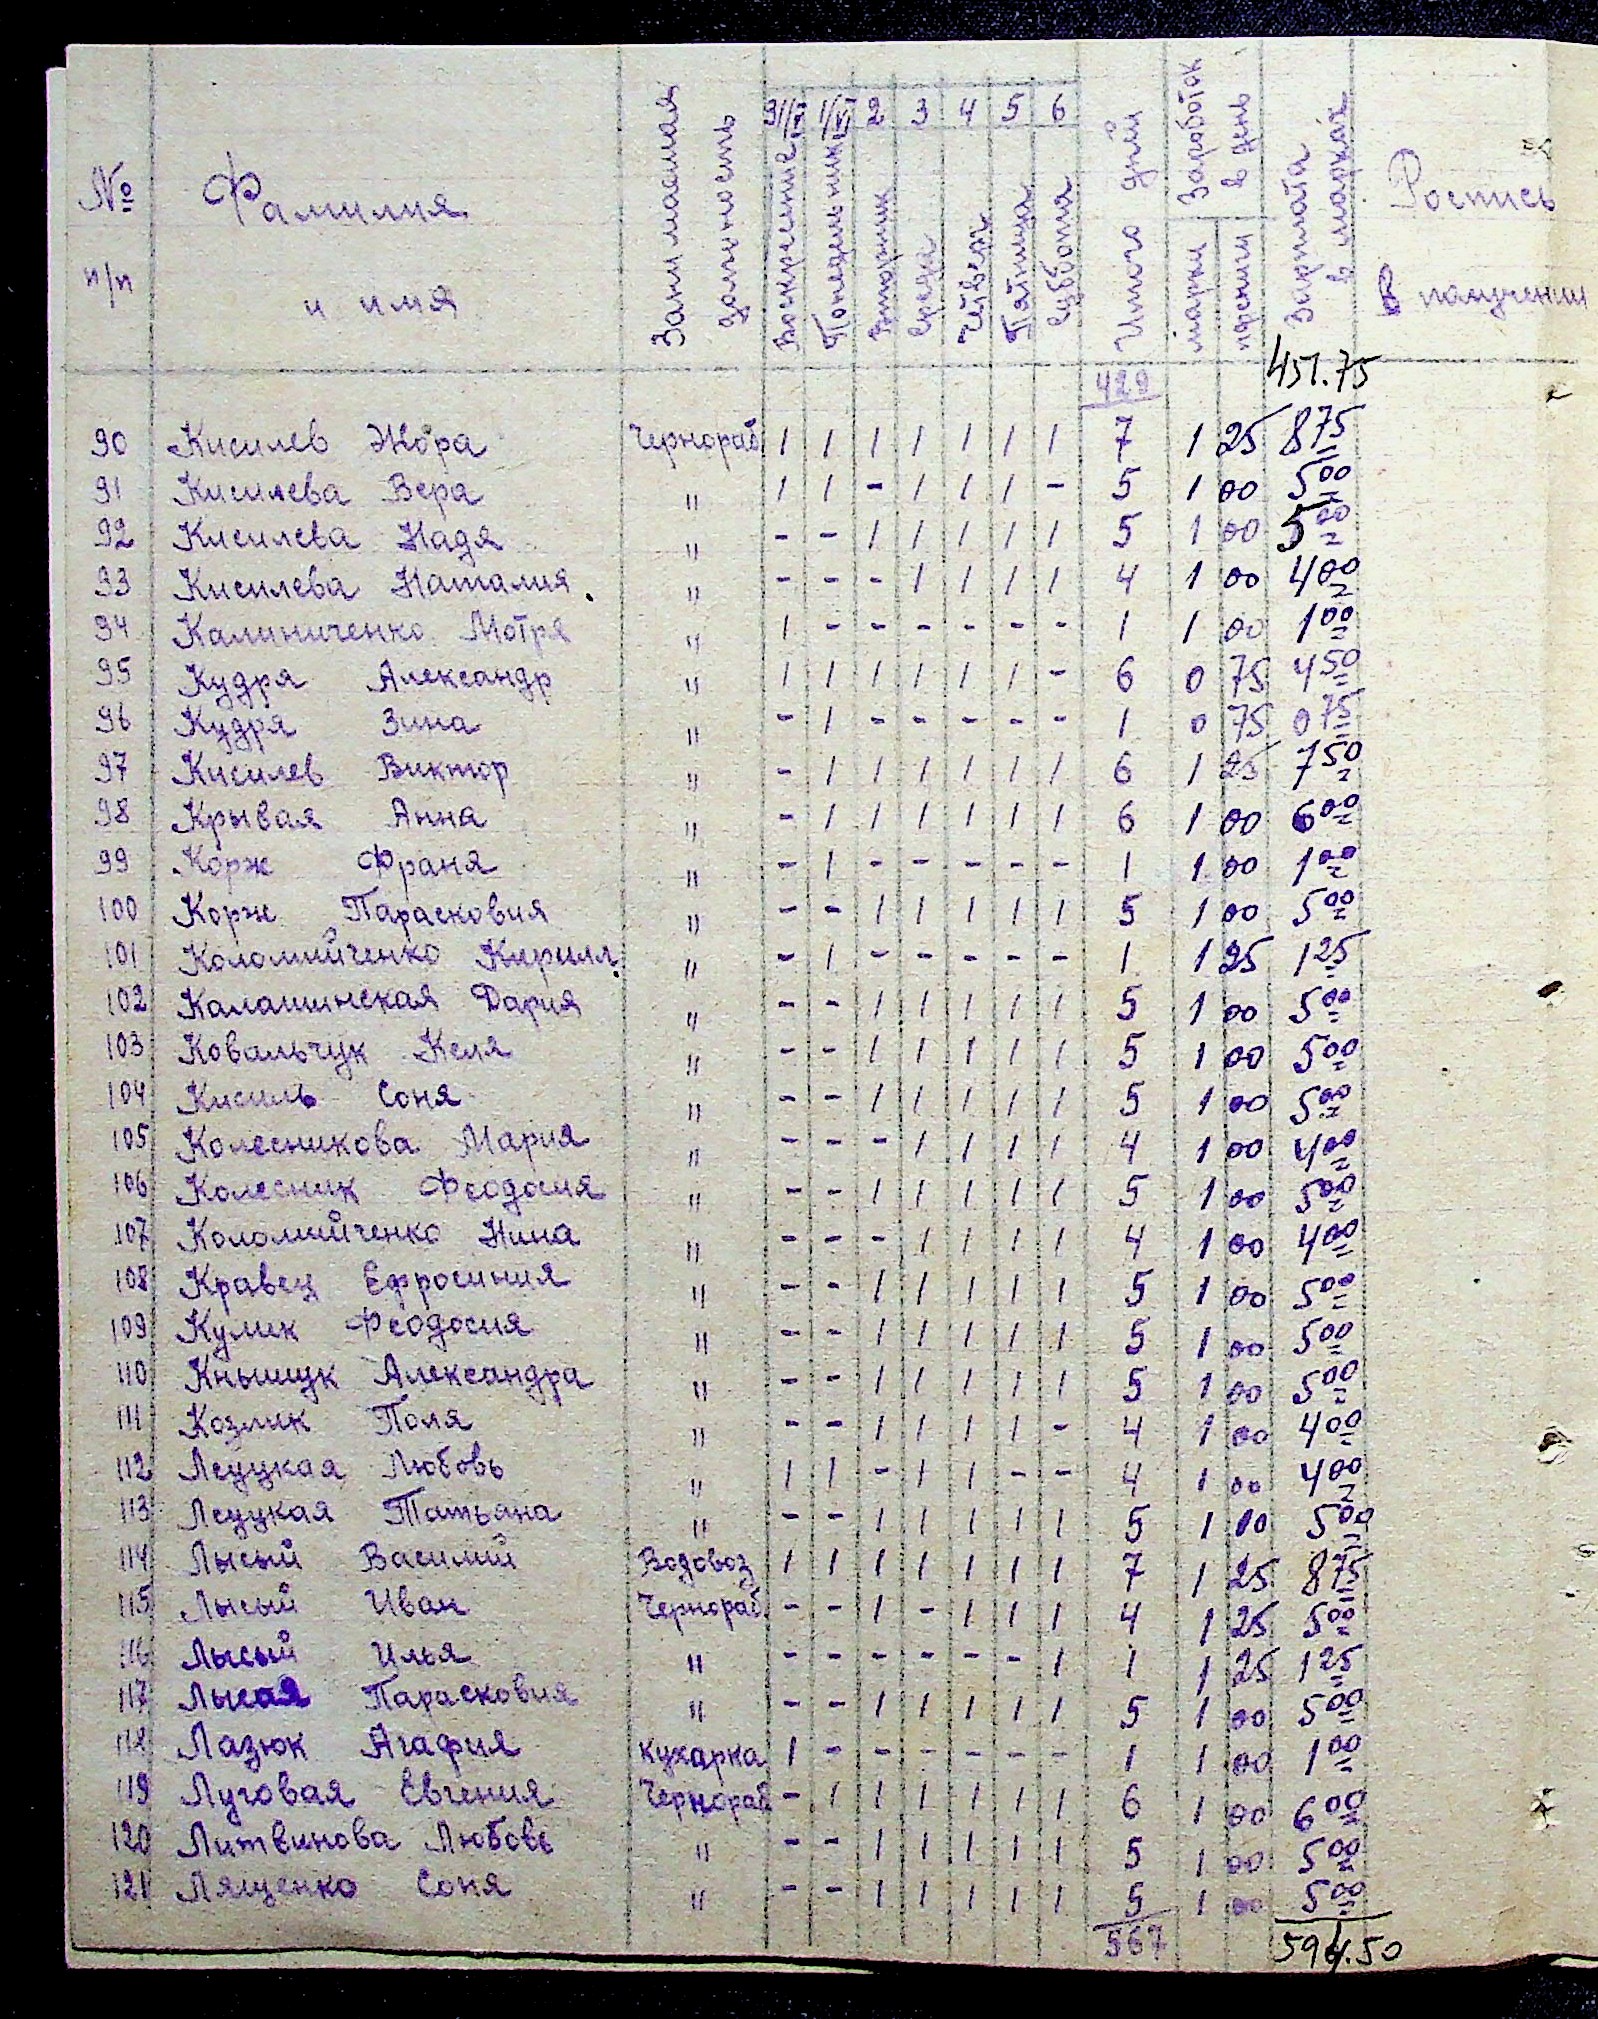 № п/п Фамилия и имя Занимаемая должность 31/V Воскресение 1/VI Понедельник 2 Вторник 3 Среда 4 Четверг 5 Пятница 6 Суббота Итого дней Заработок в день марки пфениги Зарплата в марках Роспись в получении
429 451.75
90 Кисилев Жора Чернораб. 1 1 1 1 1 1 1 7 1 25 8 75
91 Кисилева Вера " 1 1 - 1 1 1 - 5 1 00 5 00
92 Кисилева Надя " - - 1 1 1 1 1 5 1 00 5 00
93 Кисилева Наталия " - - - 1 1 1 1 4 1 00 4 00
94 Калиниченко Мотря " 1 - - - - - - 1 1 00 1 00
95 Кудря Александр " 1 1 1 1 1 1 - 6 0 75 4 50
96 Кудря Зина " - 1 - - - - - 1 0 75 0 75
97 Кисилев Виктор " - 1 1 1 1 1 1 6 1 25 7 50
98 Крывая Анна " - 1 1 1 1 1 1 6 1 00 6 00
99 Корж Франя " - 1 - - - - - 1 1 00 1 00
100 Корж Парасковия " - - 1 1 1 1 1 5 1 00 5 00
101 Коломийченко Кирилл. " - 1 - - - - - 1 1 25 1 25
102 Калашинская Дария " - - 1 1 1 1 1 5 1 00 5 00
103 Ковальчук Келя " - - 1 1 1 1 1 5 1 00 5 00
104 Кисиль Соня " - - 1 1 1 1 1 5 1 00 5 00
105 Колесникова Мария " - - - 1 1 1 1 4 1 00 4 00
106 Колесник Феодосия " - - 1 1 1 1 1 5 1 00 5 00
107 Коломийченко Нина " - - - 1 1 1 1 4 1 00 4 00
108 Кравец Ефросиния " - - 1 1 1 1 1 5 1 00 5 00
109 Кулик Феодосия " - - 1 1 1 1 1 5 1 00 5 00
110 Кнышук Александра " - - 1 1 1 1 1 5 1 00 5 00
111 Козлик Поля " - - 1 1 1 1 - 4 1 00 4 00
112 Леуцкая Любовь " 1 1 - 1 1 - - 4 1 00 4 00
113 Леуцкая Татьяна " - - 1 1 1 1 1 5 1 00 5 00
114 Лысый Василий Водовоз 1 1 1 1 1 1 1 7 1 25 8 75
115 Лысый Иван Чернораб. - - 1 - 1 1 1 4 1 25 5 00
116 Лысый Илья " - - - - - - 1 1 1 25 1 25
117 Лысая Парасковия " - - 1 1 1 1 1 5 1 00 5 00
118 Лазюк Агафия кухарка 1 - - - - - - 1 1 00 1 00
119 Луговая Евгения Чернораб - 1 1 1 1 1 1 6 1 00 6 00
120 Литвинова Любовь " - - 1 1 1 1 1 5 1 00 5 00
121 Лященко Соня " - - 1 1 1 1 1 5 1 00 5 00
567 594.50